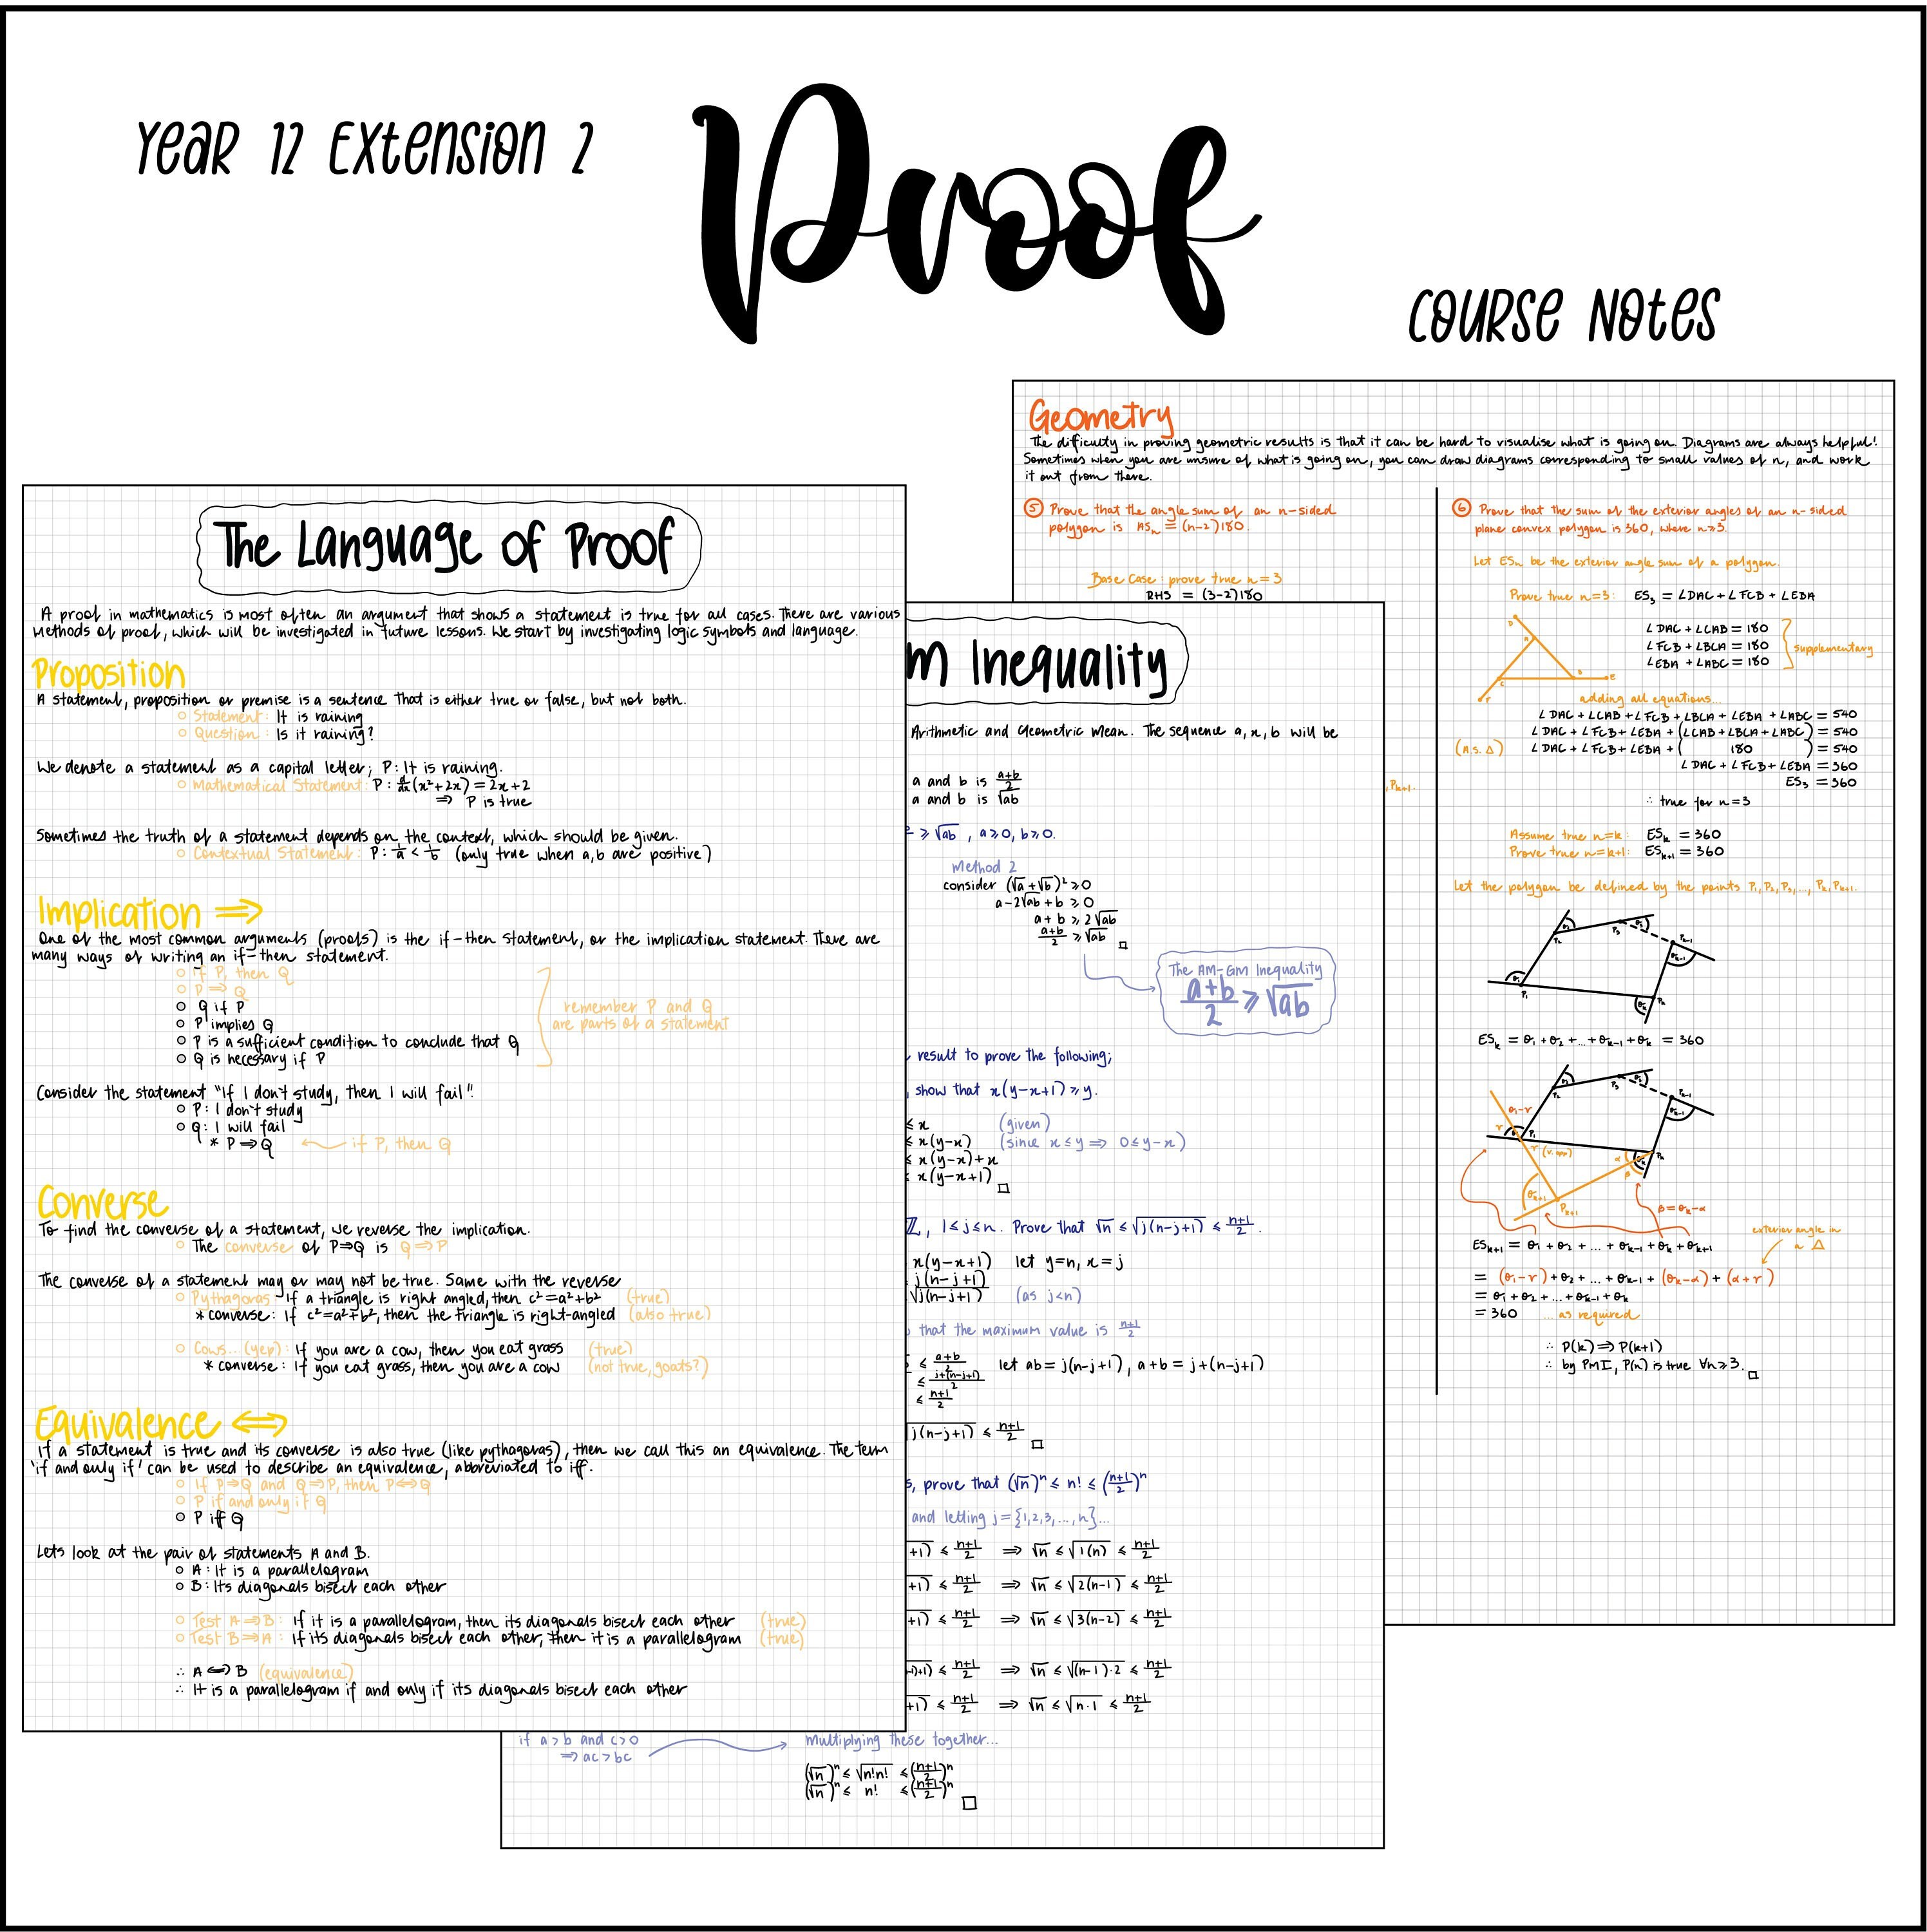 Year 12 Extension 2
Proof
Course Notes
The Language of Proof
A proof in mathematics is most often an argument that shows a statement is true for all cases. There are various
methods of proof, which will be investigated in future lessons. We start by investigating logic symbols and language.
Proposition
A statement, proposition or premise is a sentence that is either true or false, but not both.
○ Statement: It is raining
○ Question: Is it raining?
We denote a statement as a capital letter; P: It is raining.
○ Mathematical Statement: P: d/dx(x²+2x) = 2x+2
⇒ P is true
Sometimes the truth of a statement depends on the context, which should be given.
○ Contextual Statement: P: 1/a < 1/b (only true when a,b are positive)
Implication ⇒
One of the most common arguments (proofs) is the if-then statement, or the implication statement. There are
many ways of writing an if-then statement.
○ if P, then Q
○ P ⇒ Q
○ Q if P
○ P implies Q
○ P is a sufficient condition to conclude that Q
○ Q is necessary if P
remember P and Q
are parts of a statement
Consider the statement "If I don't study, then I will fail".
○ P: I don't study
○ Q: I will fail
* P ⇒ Q if P, then Q
Converse
To find the converse of a statement, we reverse the implication.
○ The converse of P⇒Q is Q⇒P
The converse of a statement may or may not be true. Same with the reverse
○ Pythagoras: If a triangle is right angled, then c²=a²+b² (true)
* converse: If c²=a²+b², then the triangle is right-angled (also true)
○ Cows...(yep): If you are a cow, then you eat grass (true)
* converse: If you eat grass, then you are a cow (not true, goats?)
Equivalence ⇔
If a statement is true and its converse is also true (like pythagoras), then we call this an equivalence. The term
'if and only if' can be used to describe an equivalence, abbreviated to iff.
○ If P⇒Q and Q⇒P, then P⇔Q
○ P if and only if Q
○ P iff Q
Lets look at the pair of statements A and B.
○ A: It is a parallelogram
○ B: Its diagonals bisect each other
○ Test A⇒B: If it is a parallelogram, then its diagonals bisect each other (true)
○ Test B⇒A: If its diagonals bisect each other, then it is a parallelogram (true)
∴ A⇔B (equivalence)
∴ It is a parallelogram if and only if its diagonals bisect each other
m Inequality
Arithmetic and Geometric Mean. The sequence a, x, b will be
a and b is a+b/2
a and b is √ab
≥ √ab , a≥0, b≥0.
Method 2
consider (√a+√b)² ≥ 0
a-2√ab + b ≥ 0
a+b ≥ 2√ab
a+b/2 ≥ √ab □
The AM-GM Inequality
a+b/2 ≥ √ab
result to prove the following;
show that x(y-x+1) ≥ y.
≤ x (given)
≤ x(y-x) (since x≤y ⇒ 0≤y-x)
≤ x(y-x)+x
≤ x(y-x+1) □
ℤ, 1≤j≤n. Prove that √n ≤ √j(n-j+1) ≤ n+1/2.
x(y-x+1) let y=n, x=j
j(n-j+1)
√j(n-j+1) (as j<n)
that the maximum value is n+1/2
≤ a+b/2 let ab = j(n-j+1), a+b = j+(n-j+1)
≤ j+(n-j+1)/2
≤ n+1/2
j(n-j+1) ≤ n+1/2 □
s, prove that (√n)ⁿ ≤ n! ≤ (n+1/2)ⁿ
and letting j={1,2,3,...,n}...
+1) ≤ n+1/2 ⇒ √n ≤ √1(n) ≤ n+1/2
+1) ≤ n+1/2 ⇒ √n ≤ √2(n-1) ≤ n+1/2
+1) ≤ n+1/2 ⇒ √n ≤ √3(n-2) ≤ n+1/2
+1) ≤ n+1/2 ⇒ √n ≤ √(n-1)·2 ≤ n+1/2
+1) ≤ n+1/2 ⇒ √n ≤ √n·1 ≤ n+1/2
if a>b and c>0
⇒ ac>bc
multiplying these together...
(√n)ⁿ ≤ √n!n! ≤ (n+1/2)ⁿ
(√n)ⁿ ≤ n! ≤ (n+1/2)ⁿ
□
Geometry
The difficulty in proving geometric results is that it can be hard to visualise what is going on. Diagrams are always helpful!
Sometimes when you are unsure of what is going on, you can draw diagrams corresponding to small values of n, and work
it out from there.
⑤ Prove that the angle sum of an n-sided
polygon is ASₙ = (n-2)180.
Base Case: prove true n=3
RHS = (3-2)180
, Pₖ₊₁.
⑥ Prove that the sum of the exterior angles of an n-sided
plane convex polygon is 360, where n≥3.
Let ESₙ be the exterior angle sum of a polygon.
Prove true n=3: ES₃ = ∠DAC + ∠FCB + ∠EBA
D
A
B
E
C
F
∠DAC + ∠CAB = 180
∠FCB + ∠BCA = 180
∠EBA + ∠ABC = 180
supplementary
adding all equations...
∠DAC + ∠CAB + ∠FCB + ∠BCA + ∠EBA + ∠ABC = 540
∠DAC + ∠FCB + ∠EBA + (∠CAB + ∠BCA + ∠ABC) = 540
(A.S. Δ) ∠DAC + ∠FCB + ∠EBA + ( 180 ) = 540
∠DAC + ∠FCB + ∠EBA = 360
ES₃ = 360
∴ true for n=3
Assume true n=k: ESₖ = 360
Prove true n=k+1: ESₖ₊₁ = 360
Let the polygon be defined by the points P₁, P₂, P₃, ..., Pₖ, Pₖ₊₁.
θ₁
P₁
θ₂
P₂
θ₃
P₃
Pₖ₋₁
θₖ₋₁
θₖ
Pₖ
ESₖ = θ₁ + θ₂ + ... + θₖ₋₁ + θₖ = 360
θ₂
P₂
P₃
θ₃
Pₖ₋₁
θₖ₋₁
θ₁-γ
γ
P₁
γ (v. opp)
α
β
Pₖ
θₖ₊₁
Pₖ₊₁
β=θₖ-α
exterior angle in
a Δ
ESₖ₊₁ = θ₁ + θ₂ + ... + θₖ₋₁ + θₖ + θₖ₊₁
= (θ₁-γ) + θ₂ + ... + θₖ₋₁ + (θₖ-α) + (α+γ)
= θ₁ + θ₂ + ... + θₖ₋₁ + θₖ
= 360 ...as required
∴ P(k) ⇒ P(k+1)
∴ by PMI, P(n) is true ∀n≥3. □